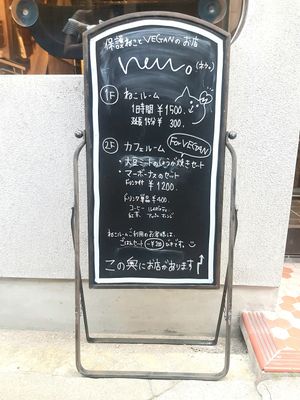 保護ねことVEGANのお店
neu。(ネウ)
1F ねこルーム
1時間 ¥1500.
延長15分 ¥ 300.
2F カフェルーム For VEGAN
・大豆ミートのしょうが焼きセット
・マーボーナスのセット
ドリンク付 ¥1200.
ドリンク単品 ¥400.
コーヒー
紅茶
ねこルームご利用のお客様は、
ごはんセット
この奥にお店があります